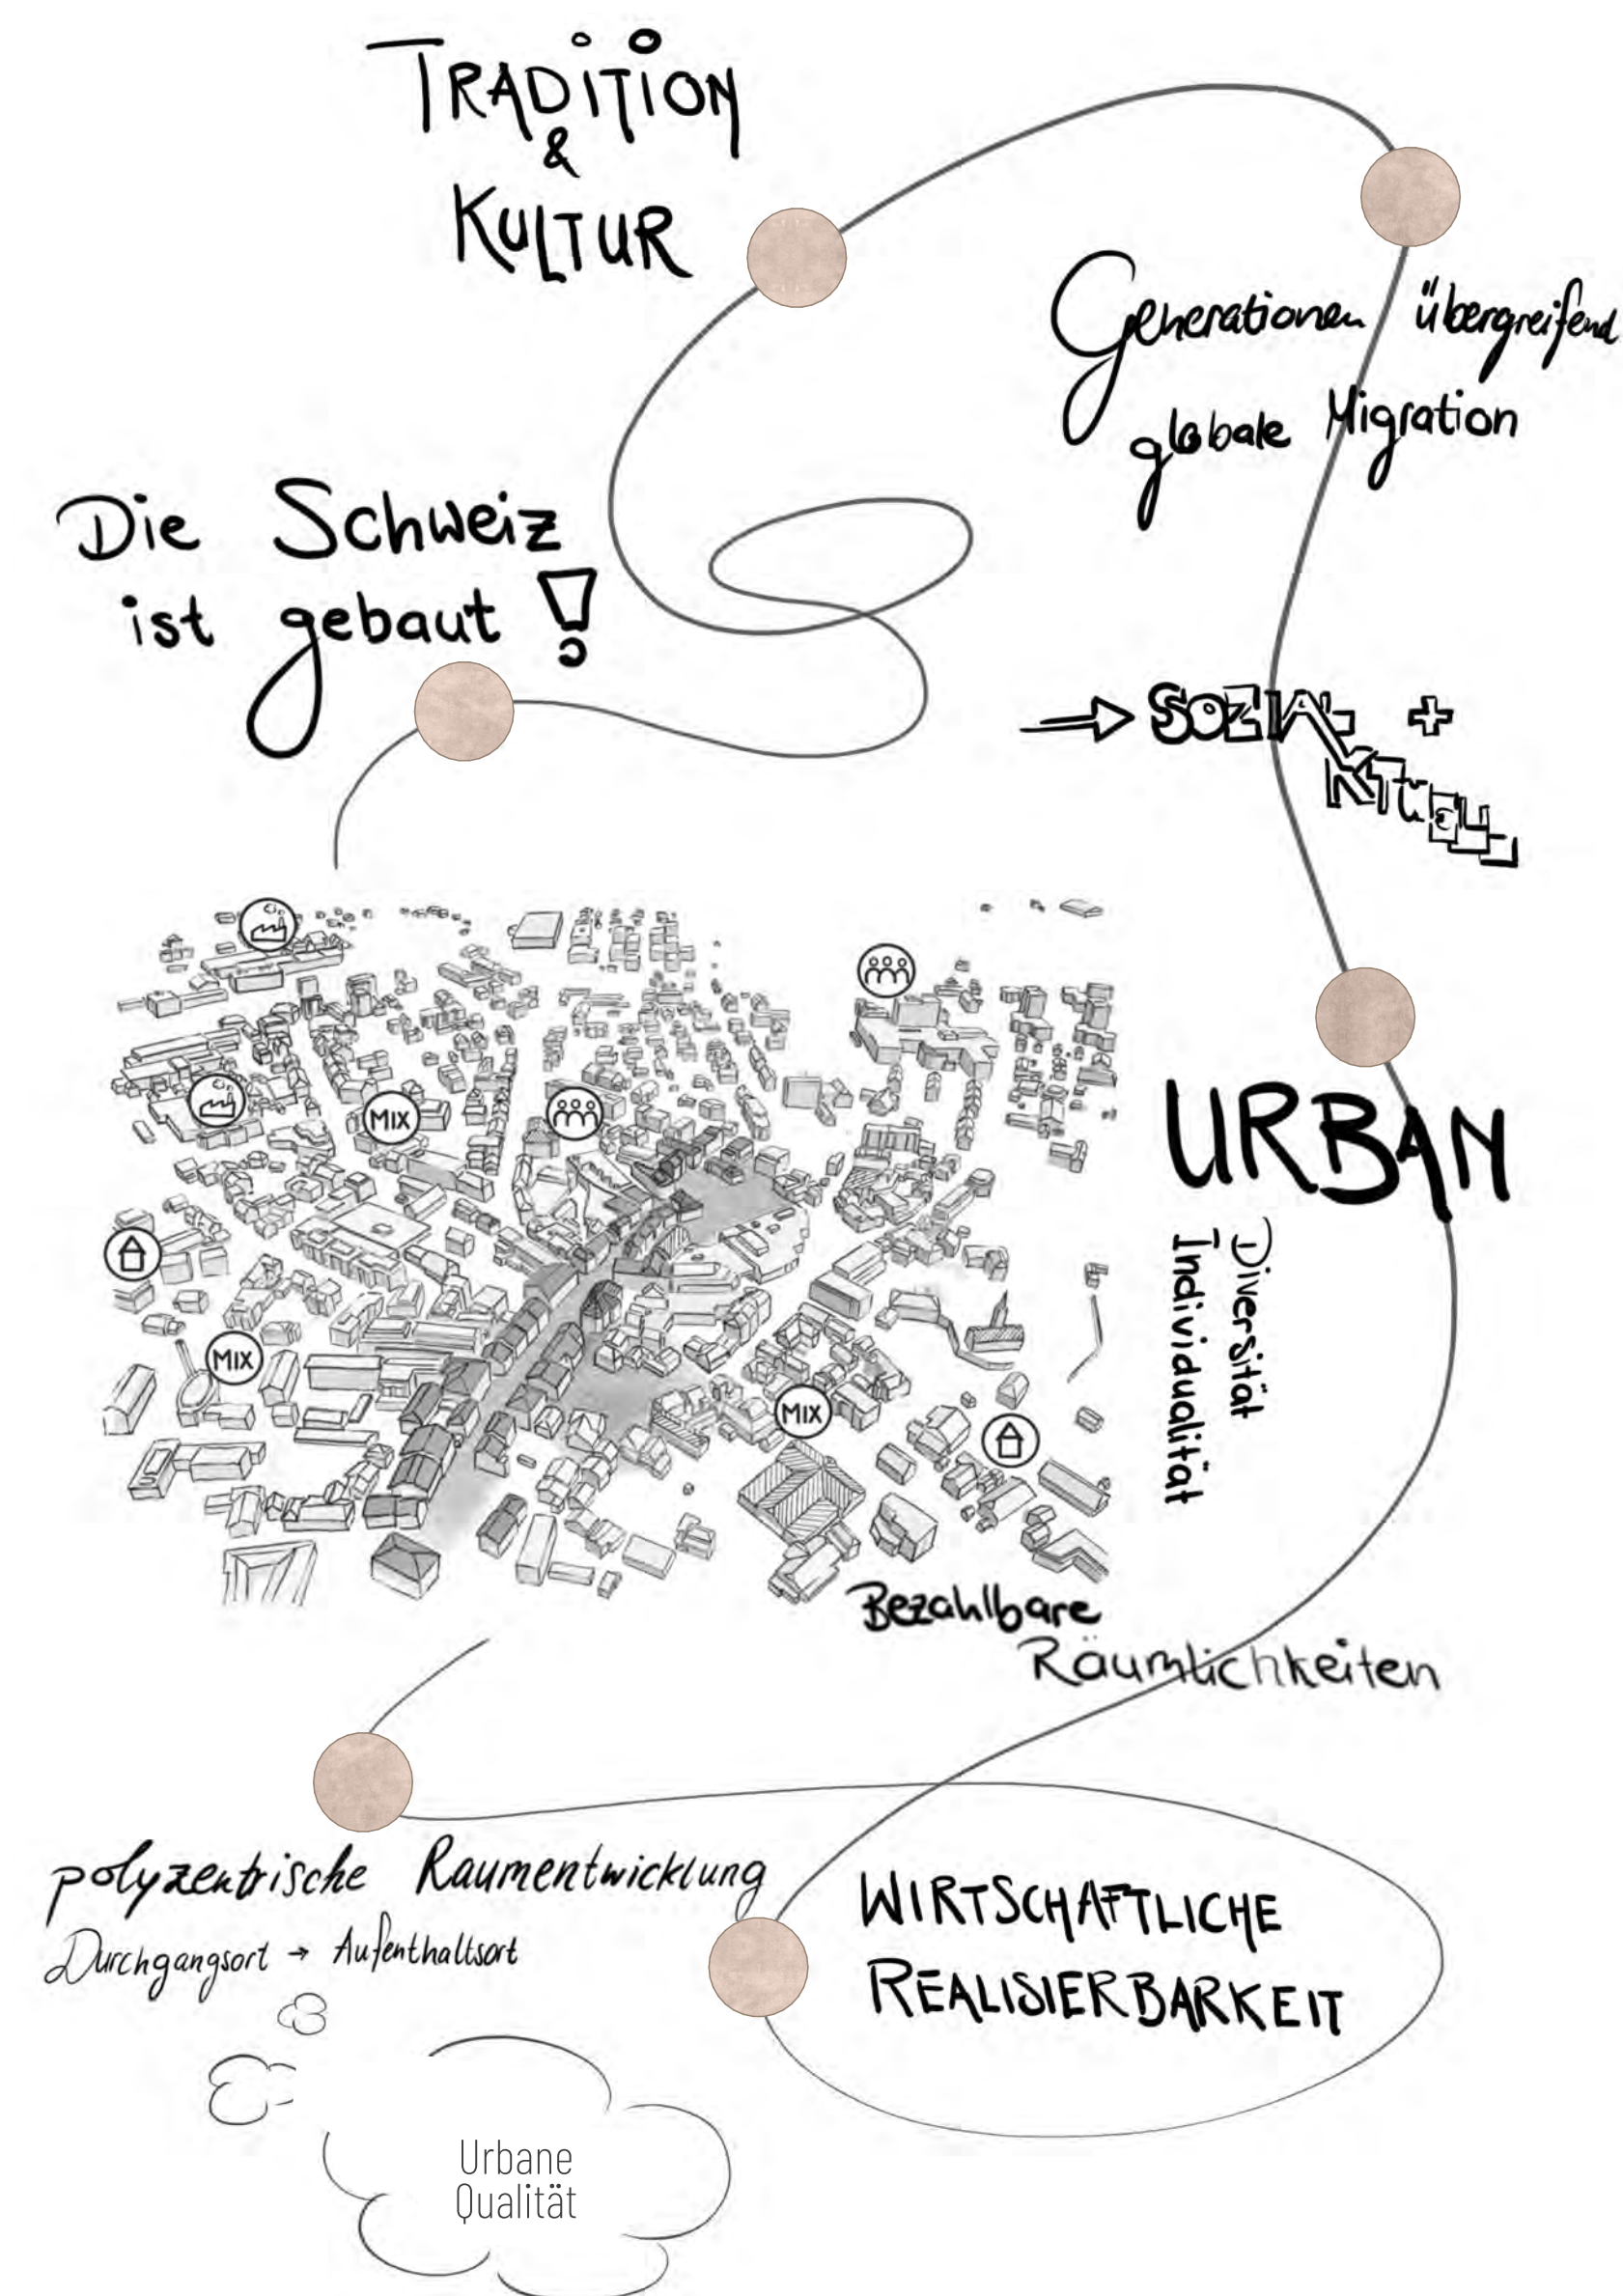 TRADITION
&
KULTUR
Generationen übergreifend
globale Migration
Die Schweiz
ist gebaut!
→ SOZIAL +
AKTUELL
MIX
MIX
MIX
URBAN
Diversität
Individualität
Bezahlbare
Räumlichkeiten
polyzentrische Raumentwicklung
Durchgangsort → Aufenthaltsort
WIRTSCHAFTLICHE
REALISIERBARKEIT
Urbane
Qualität